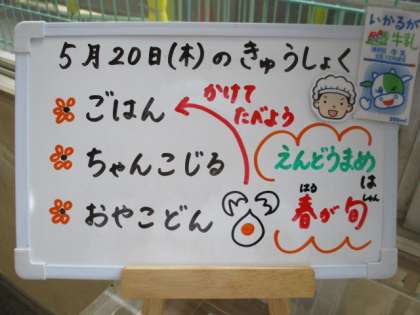 5月20日(木)のきゅうしょく
ごはん
かけて
たべよう
ちゃんこじる
おやこどん
えんどうまめ
は
春が旬
はる
しゅん
いかるが
牛乳